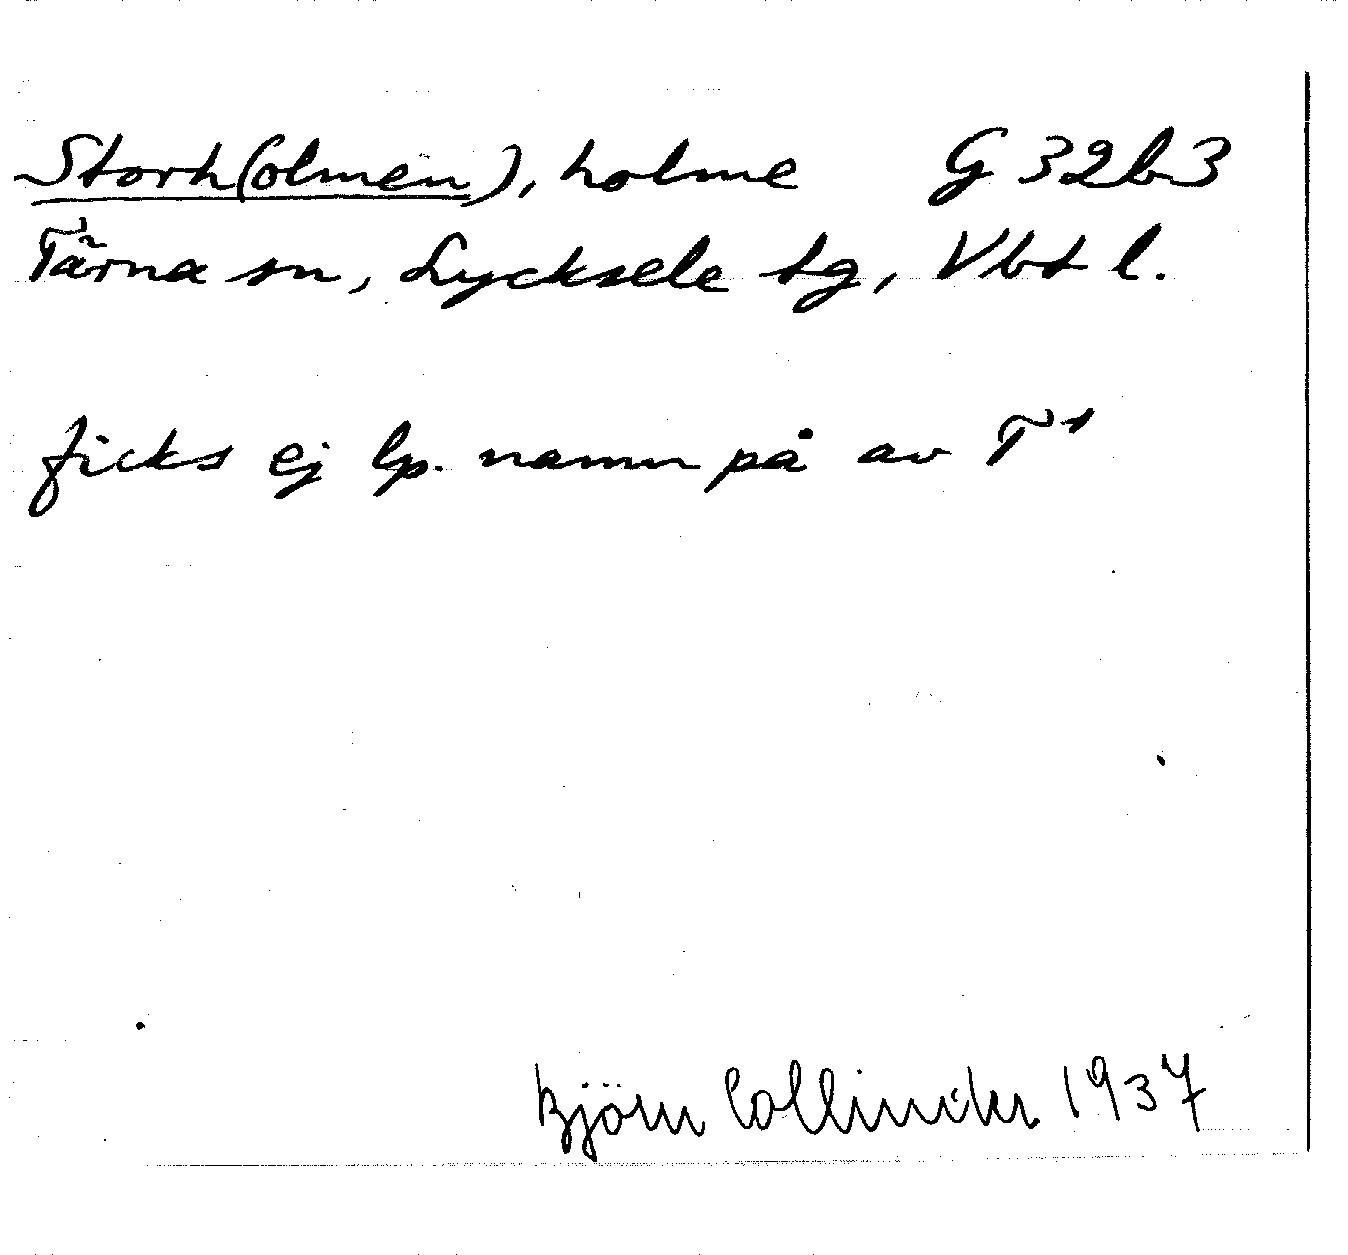 Storh(olmen), holme G 32b3
Tärna sn, Lycksele tg, Vbt l.
ficks ej lp. namn på av T¹
Björn Collinder 1937